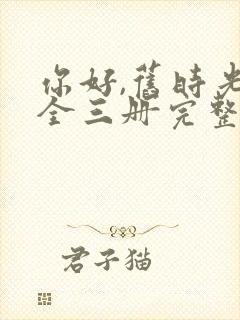 你好,旧时光
全三册完整
君子猫